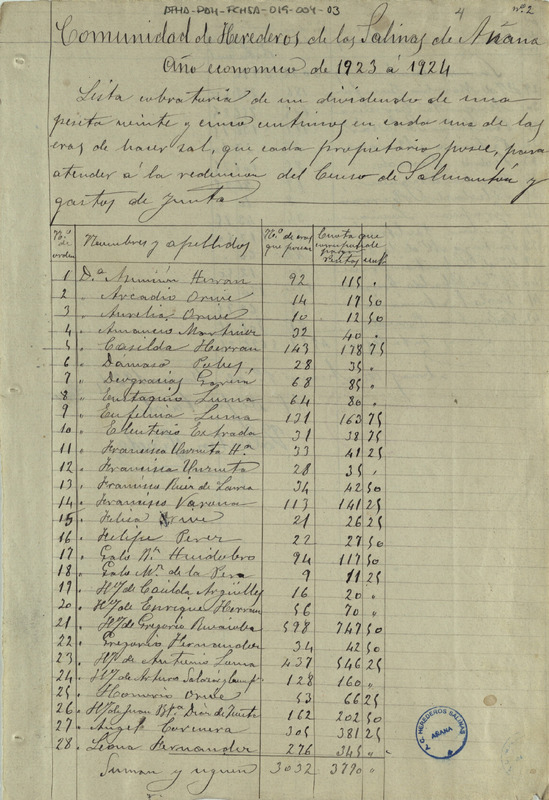 ATHA-DAH-FCHSA-019-004-03
4 nº 2
Comunidad de Herederos de las Salinas de Añana
Año economico de 1923 á 1924
Lista cobratoria de un dividendo de una
peseta veinte y cinco centimos en cada una de las
eras de hacer sal, que cada propietario posee, para
atender á la redención del Censo de y
gastos de Junta
Nº de orden Nombres y apellidos Nº de eras que posee Cuota que corresponde pagar Pesetas cent.
1 D.ª Herran 92 115 "
2 " Arcadio Orive 14 17 50
3 " Aurelia Orive 10 12 50
4 " Amancio Martinez 32 40 "
5 " Casilda Herran 143 178 75
6 " Dámaso 28 35 "
7 " Deogracias 68 85 "
8 " Eustaquio Luma 64 80 "
9 " Eufemia Luma 131 163 75
10 " Eleuterio Estrada 31 38 75
11 " Francisca Urruta Hª 33 41 25
12 " Francisca Urruta 28 35 "
13 " Francisco Ruiz de 34 42 50
14 " Francisco Varona 113 141 25
15 " Felisa Orive 21 26 25
16 " Felipe Perez 22 27 50
17 " Galo Mª Huidobro 94 117 50
18 " Galo Mª de la Pera 9 11 25
19 " Hos de Casilda Argüelles 16 20 "
20 " Hos de Enrique Herran 56 70 "
21 " Hos de Gregorio 598 747 50
22 " Gregorio Hernandez 34 42 50
23 " Hos de Antonio Luma 437 546 25
24 " Hos de Arturo 128 160 "
25 " Honorio Orive 53 66 25
26 " Hos de Juan Btª Diaz de 162 202 50
27 " Angel Corcuera 305 381 25
28 " Leona Fernandez 276 345 "
Suman y siguen 3032 3790 "
Y.C. HEREDEROS SALINAS
AÑANA